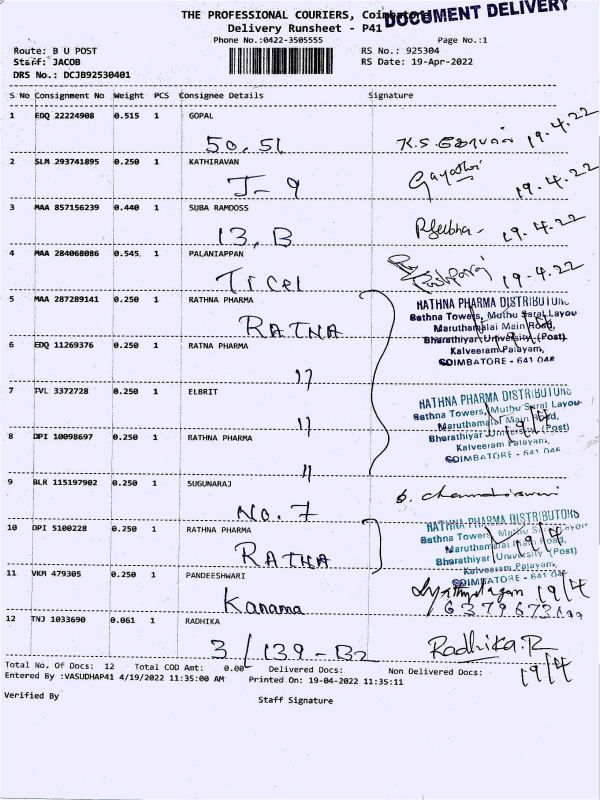 THE PROFESSIONAL COURIERS, Coimbatore
DOCUMENT DELIVERY
Delivery Runsheet - P41
Phone No.:0422-3505555 Page No.:1
Route: B U POST RS No.: 925304
Staff: JACOB RS Date: 19-Apr-2022
DRS No.: DCJB92530401
S No Consignment No Weight PCS Consignee Details Signature
1 EDQ 22224908 0.515 1 GOPAL
50.51 K.S. 19.4.22
2 SLM 293741895 0.250 1 KATHIRAVAN Gayathri
J-9 19.4.22
3 MAA 857156239 0.440 1 SUBA RAMDOSS
13, B 19.4.22
4 MAA 284068086 0.545. 1 PALANIAPPAN
Tr cel 19-4.22
5 MAA 287289141 0.250 1 RATHNA PHARMA
RATNA
RATHNA PHARMA DISTRIBUTORS
Rathna Towers, Muthu Saral Layou
Maruthamalai Main Road,
Bharathiyar University (Post)
Kalveeram Palayam,
COIMBATORE - 641 046
19/4
6 EDQ 11269376 0.250 1 RATNA PHARMA
11
7 TVL 3372728 0.250 1 ELBRIT
11
RATHNA PHARMA DISTRIBUTORS
Rathna Towers, Muthu Saral Layou
Maruthamalai Main Road,
Bharathiyar University (Post)
Kalveeram Palayam,
COIMBATORE - 641 046
19/4
8 DPI 10098697 0.250 1 RATHNA PHARMA
11
9 BLR 115197902 0.250 1 SUGUNARAJ
No. 7
10 DPI 5100228 0.250 1 RATHNA PHARMA
RATNA
RATHNA PHARMA DISTRIBUTORS
Rathna Towers, Muthu Saral Layou
Maruthamalai Main Road,
Bharathiyar University (Post)
Kalveeram Palayam,
COIMBATORE - 641 046
19/4
11 VKM 479305 0.250 1 PANDEESHWARI
Kanama 19/4
12 TNJ 1033690 0.061 1 RADHIKA
3/139-B2 Radhika.R
19/4
Total No. Of Docs: 12 Total COD Amt: 0.00 Delivered Docs: Non Delivered Docs:
Entered By :VASUDHAP41 4/19/2022 11:35:00 AM Printed On: 19-04-2022 11:35:11
Verified By Staff Signature